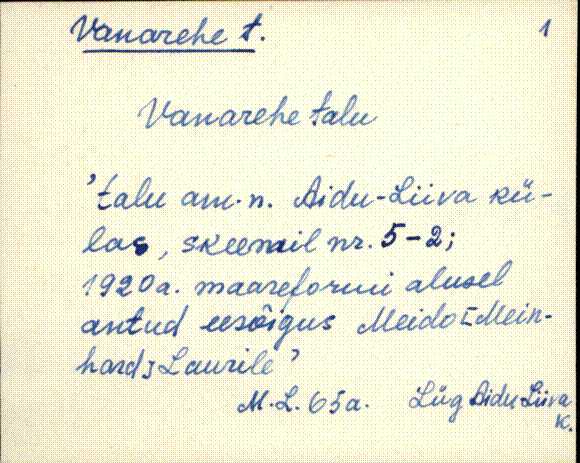 Vanarehe t.
1
Vanarehe talu
'talu am. n. Aidu-Liiva kü-
las, skeemil nr. 5-2;
1920a. maareformi alusel
antud eesõigus Meido [Mein-
hard] Laurile'
M.L. 65a. Lüg Aidu-Liiva
k.